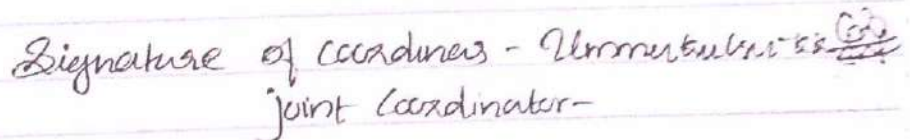 Signature of coordiners -
joint Coordinator-